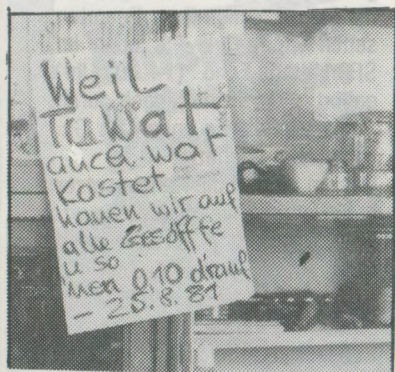 Weil
TuWat
auch wat
kostet
hauen wir auf
alle Gesöffe
u so
'nen 0,10 drauf
- 25.8.81